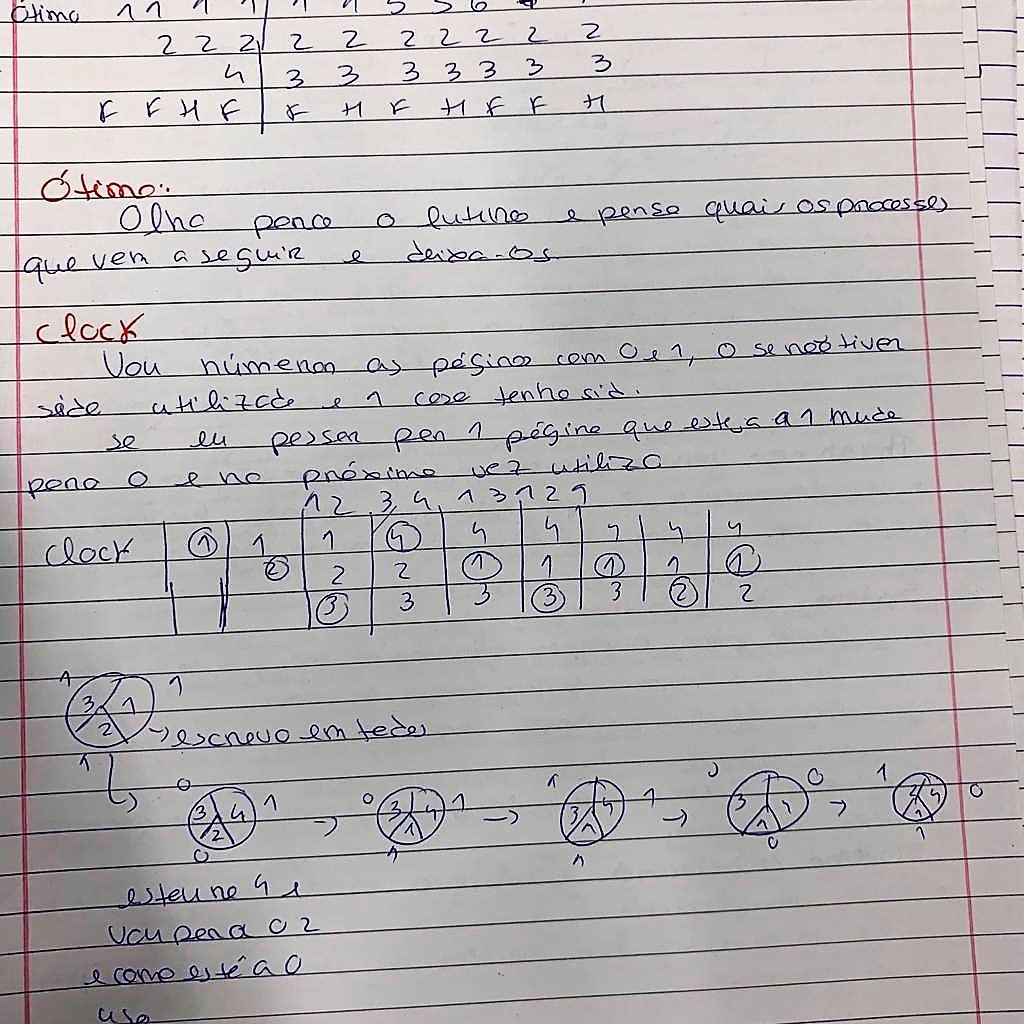 Ótimo 1 1 1 1 1 1 5 5 6
2 2 2 2 2 2 2 2 2 2
4 3 3 3 3 3 3 3
F F H F F H F H F F H
Ótimo:
Olho para o futuro e penso quais os processos
que vem a seguir e deixa-os
Clock
Vou númerar as páginas com 0 e 1, 0 se não tiver
sido utilizada e 1 caso tenha sid.
se eu passar por 1 página que esteja a 1 muda
para 0 e na próxima vez utiliza
1 2 3, 4, 1 3 1 2 1
Clock 1 1 1 4 4 4 4 4 4
2 2 2 1 1 1 1 1
3 3 3 3 3 2 2
1 1
3 1
2 → escrevo em todos
1
0 0 1 0 1
3 4 1 → 3 4 1 → 3 4 1 → 3 4 → 2 4 0
2 1 1 1 1
0 1 1 0 1
estou no 4 e
vou para o 2
e como está a 0
uso